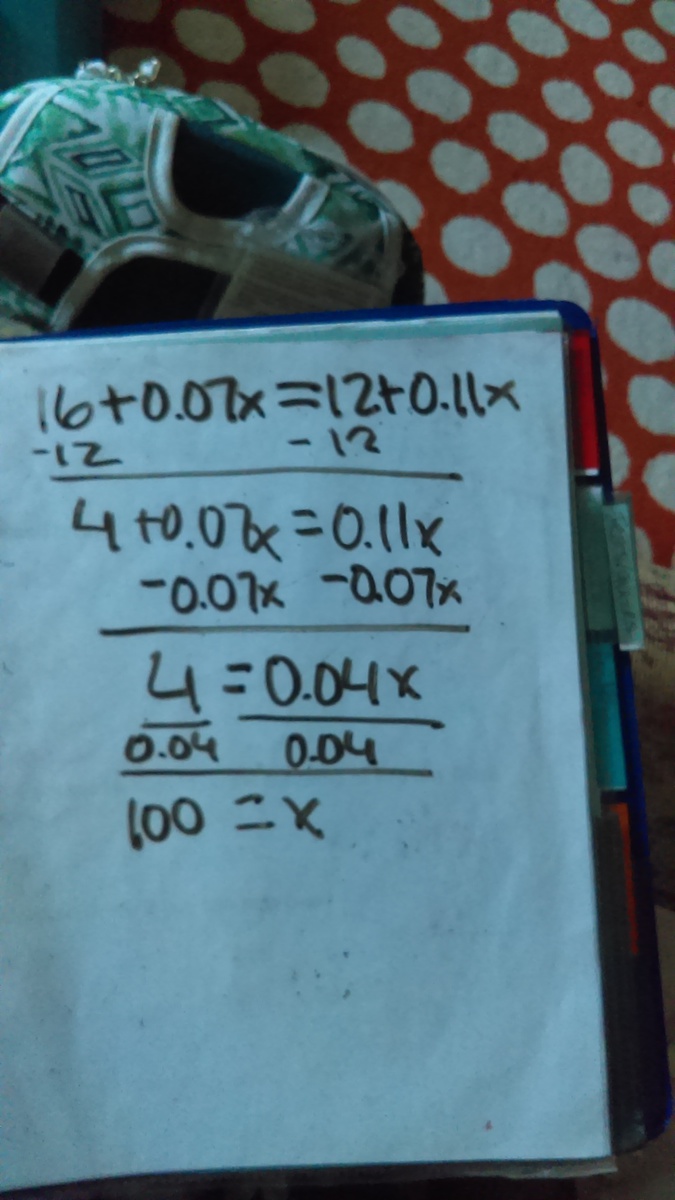 16+0.07x=12+0.11x
-12 -12
4+0.07x=0.11x
-0.07x -0.07x
4=0.04x
0.04 0.04
100=x